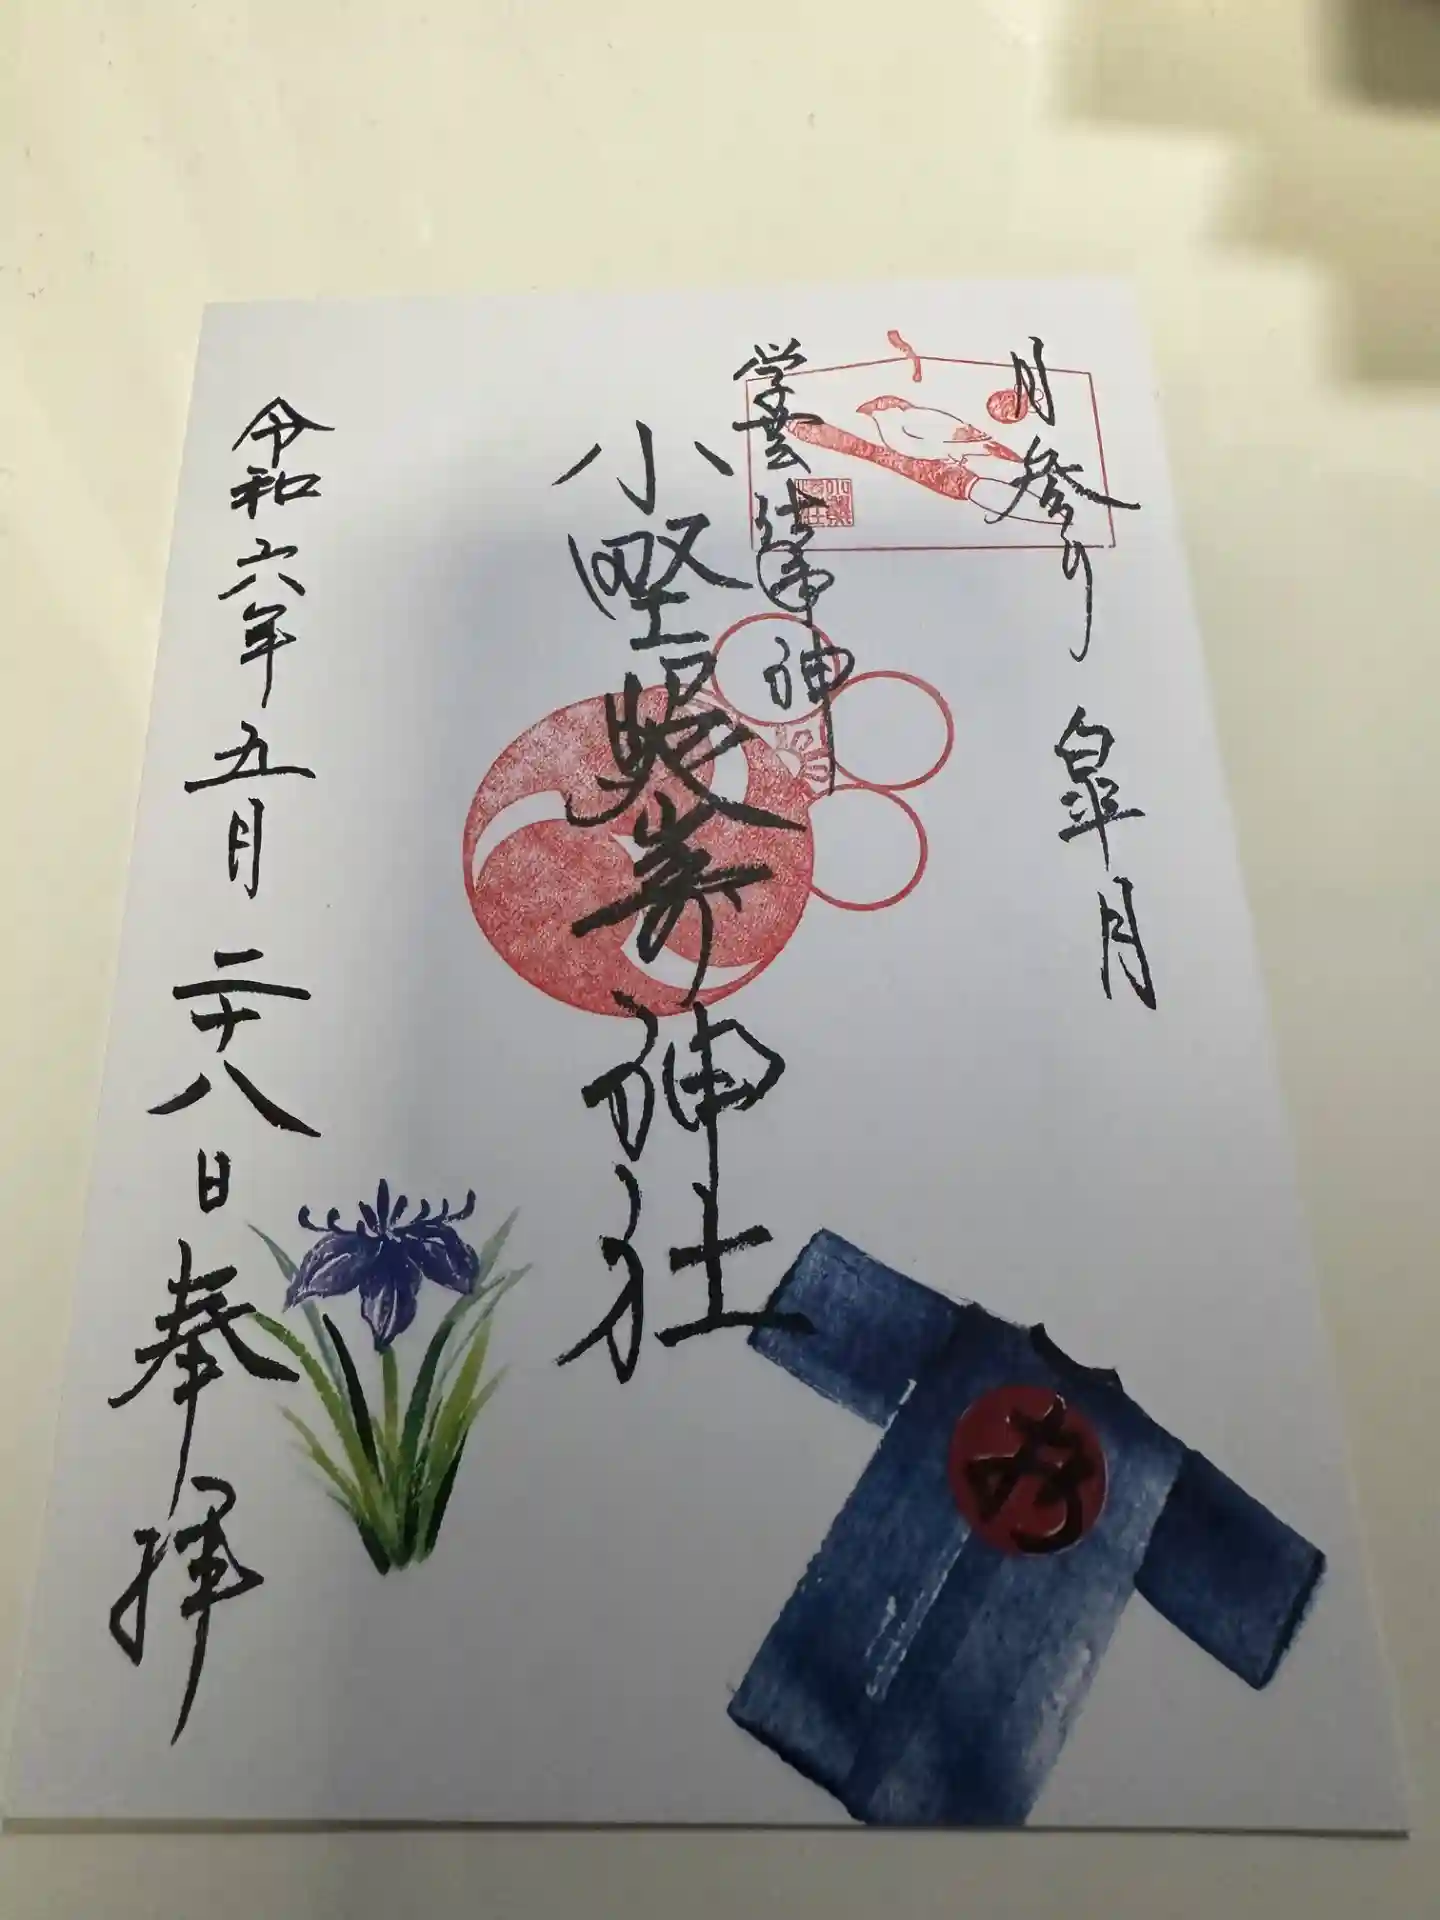 月参り 皐月
学芸 仕事神
小野照崎神社
令和六年五月二十八日奉拝